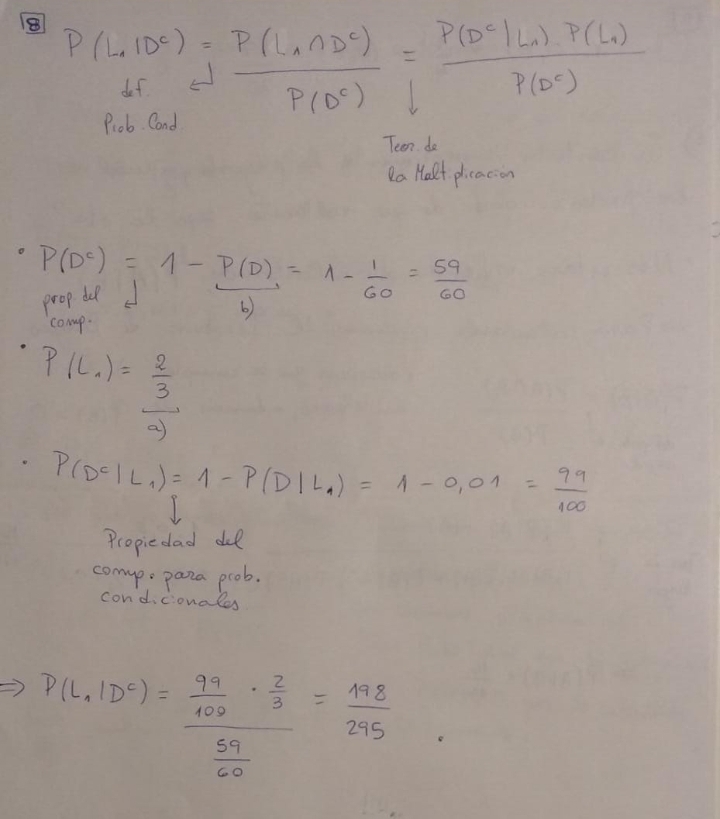 8
P(L₁|Dᶜ) = P(L₁∩Dᶜ)/P(Dᶜ) = P(Dᶜ|L₁) P(L₁)/P(Dᶜ)
def.
Prob. Cond
Teor. de
la Multiplicacion
• P(Dᶜ) = 1 - P(D) = 1 - 1/60 = 59/60
prop. del
comp.
b)
• P(L₁) = 2/3
a)
• P(Dᶜ|L₁) = 1 - P(D|L₁) = 1 - 0,01 = 99/100
Propiedad del
comp. para prob.
condicionales
⇒ P(L₁|Dᶜ) = (99/100 · 2/3)/(59/60) = 198/295 .